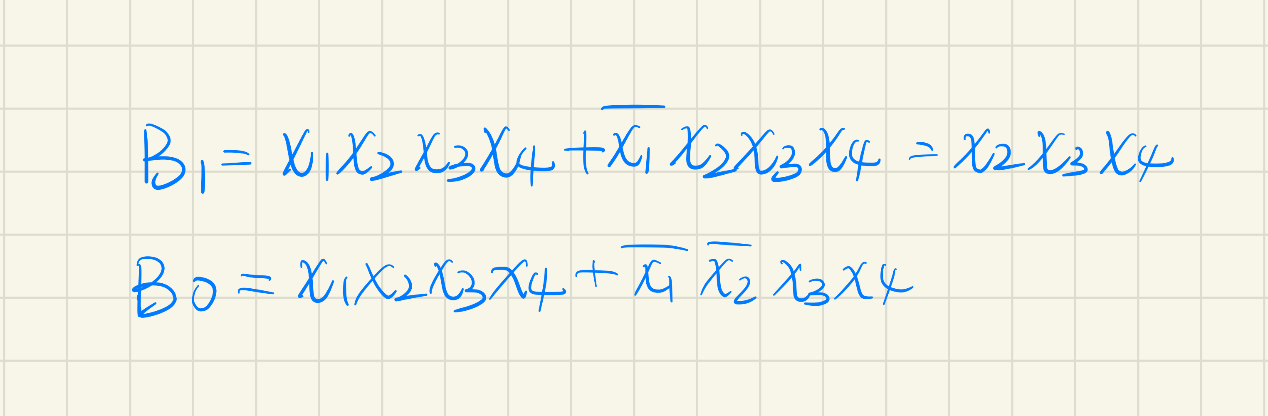 B₁ = x₁x₂x₃x₄ + x̅₁ x₂x₃x₄ = x₂x₃x₄
B₀ = x₁x₂x₃x₄ + x̅₁ x̅₂ x₃x₄